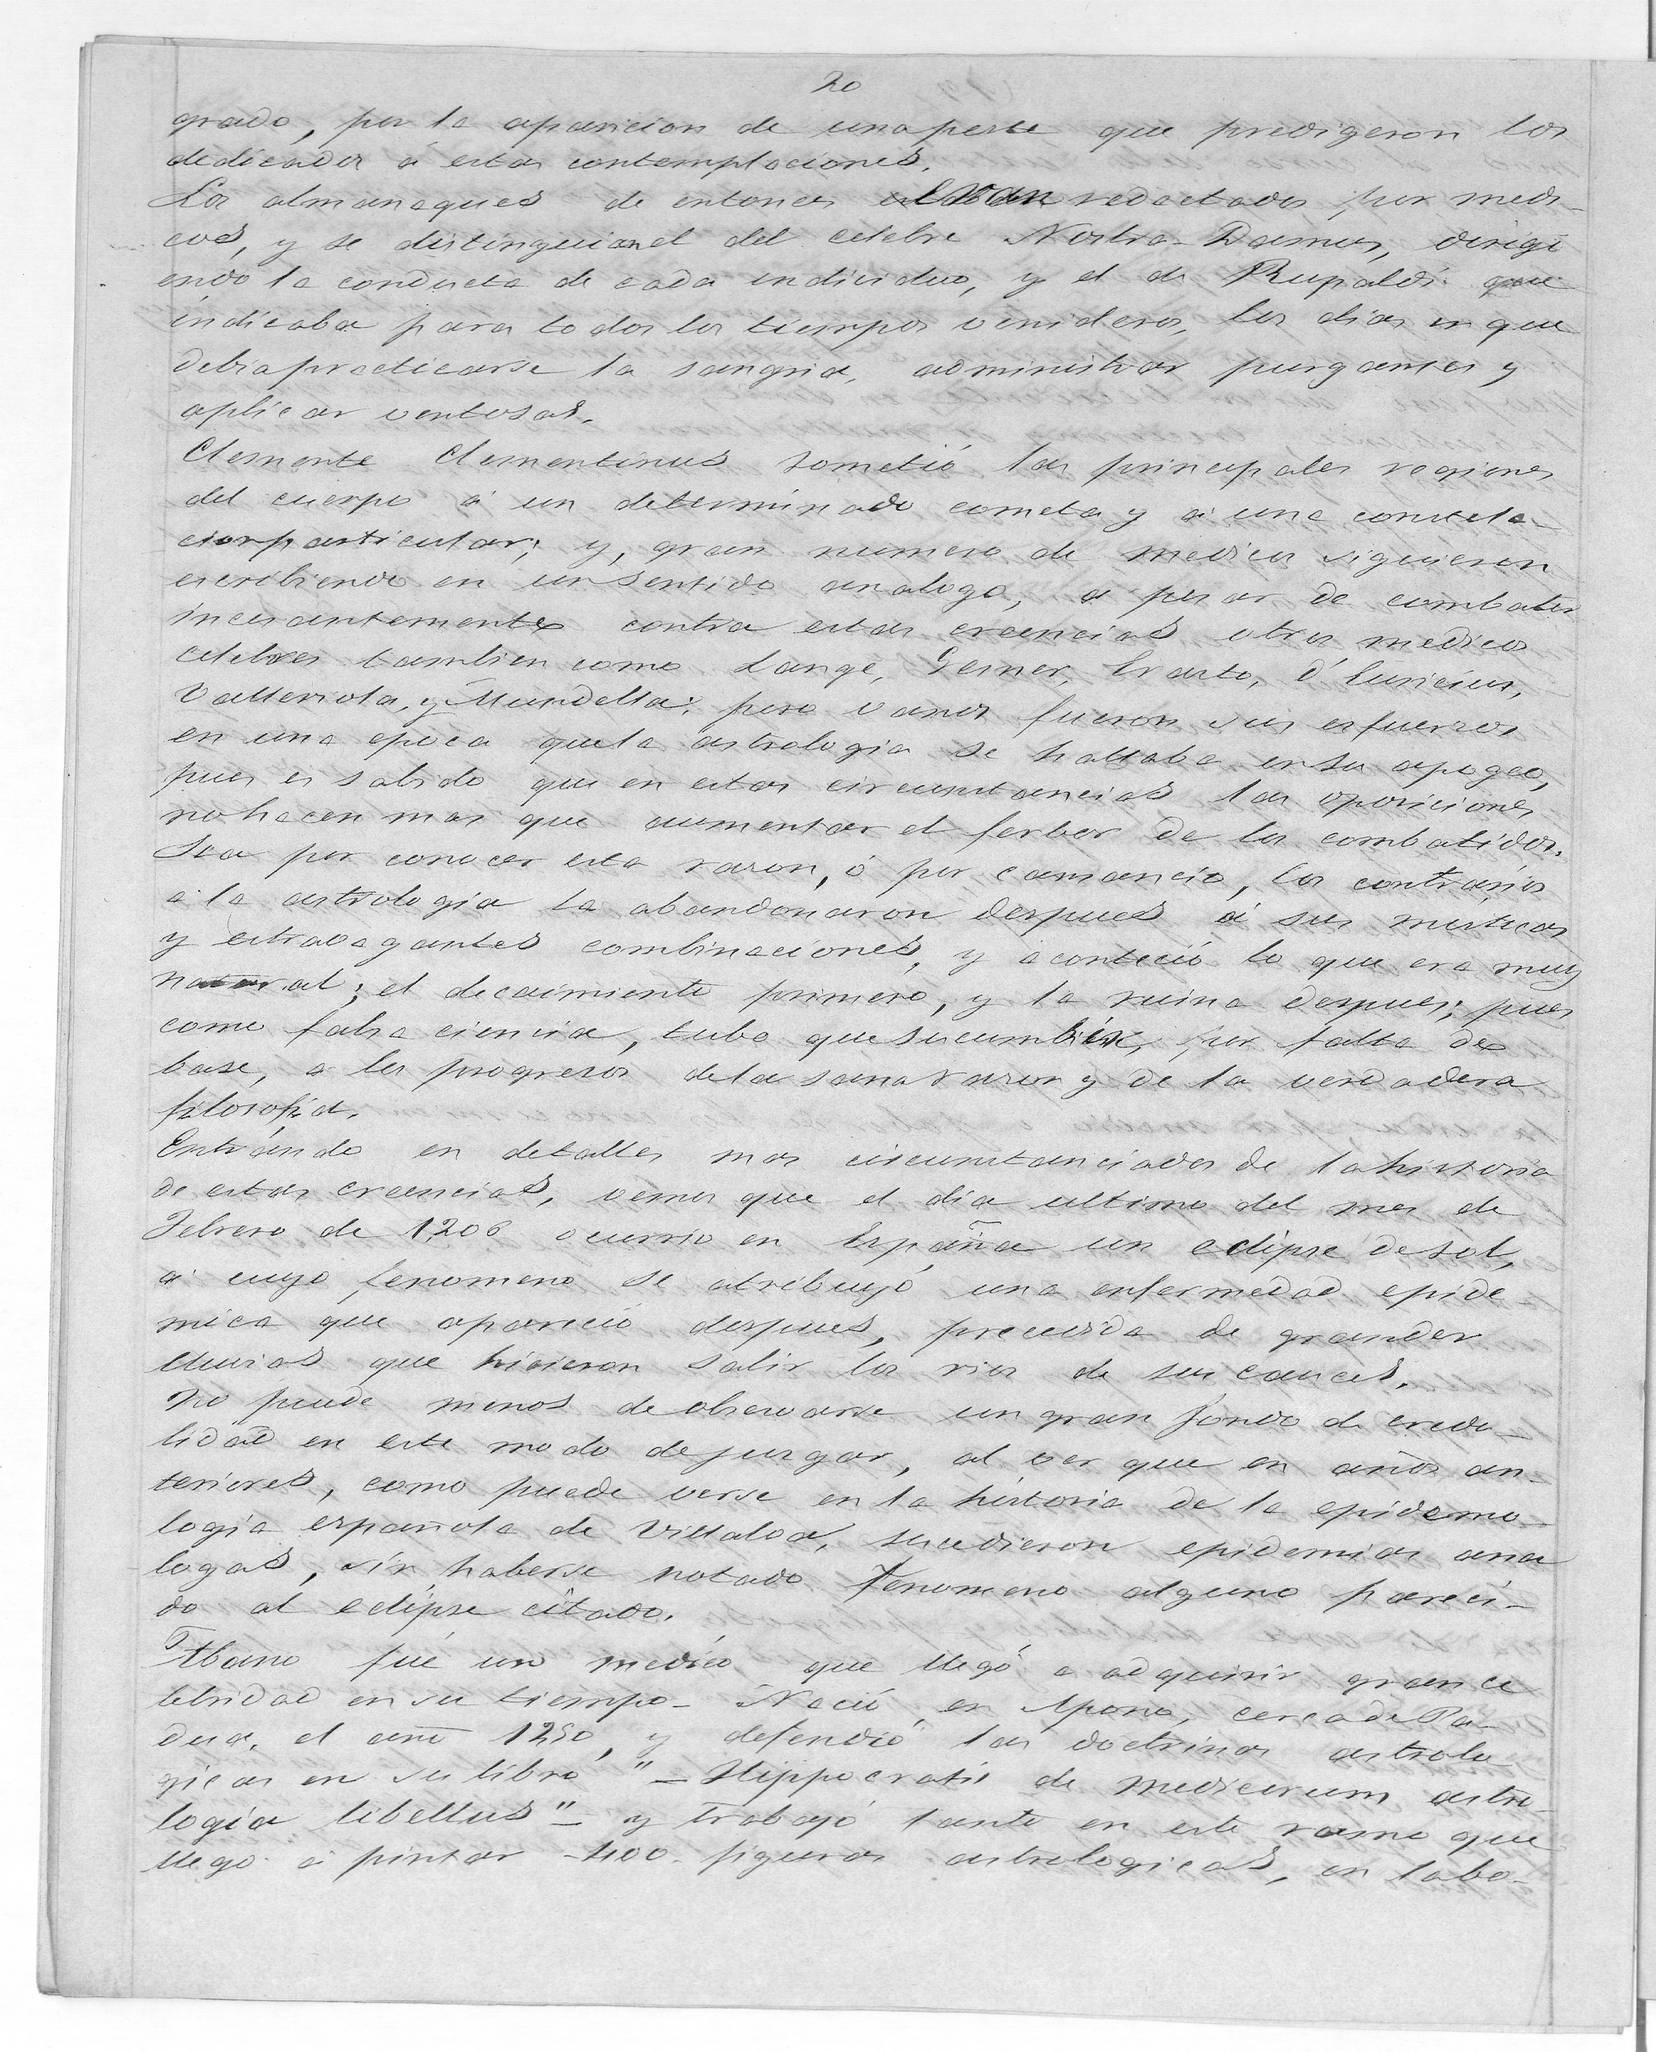 20
grado, por la aparicion de una peste que predigeron los
dedicados á estas contemplaciones.
Los almanaques de entonces eran redactados por medi-
cos, y se distinguian el del celebre Nostra-Damus, dirigi
endo la conducta de cada individuo, y el de Rupaldi que
indicaba para todos los tiempos venideros, los dias en que
debia practicarse la sangria, administrar purgantes y
aplicar ventosas.
Clemente Clementinus sometió las principales regiones
del cuerpo á un determinado cometa y á una constela-
cion particular; y, gran numero de medicos siguieron
escribiendo en un sentido analogo, a pesar de combatir
incesantemente contra estas creencias otros medicos
celebres tambien como Lange, Gesner, Erasto, d'
Valleriola, y Mundella; pero vanos fueron sus esfuerzos
en una epoca que la astrologia se hallaba en su apogeo,
pues es sabido que en estas circunstancias las oposiciones
no hacen mas que aumentar el ferbor de los combatidos.
Sea por conocer esta razon, ó por cansancio, los contrarios
a la astrologia la abandonaron despues á sus misticas
y estravagantes combinaciones, y aconteció lo que era muy
natural; el decaimiento primero, y la ruina despues; pues
como falsa ciencia, tubo que sucumbir, por falta de
base, a los progresos de la sana razon y de la verdadera
filosofia.
Entrando en detalles mas circunstanciados de la historia
de estas creencias, vemos que el dia ultimo del mes de
Febrero de 1206 ocurrio en España un eclipse de sol,
á cuyo fenomeno se atribuyó una enfermedad epide-
mica que apareció despues, precedida de grandes
lluvias que hicieron salir los rios de sus cauces.
No puede menos de observarse un gran fondo de credu-
lidad en este modo de juzgar, al ver que en años an-
teriores, como puede verse en la historia de la epidemo-
logia española de Villalva, sucedieron epidemias ana
logas, sin haberse notado fenomeno alguno pareci-
do al eclipse citado.
Abano fué un medico que llegó a adquirir gran ce
lebridad en su tiempo- Nació en Apono, cerca de Pa-
dua, el año 1250, y defendió las doctrinas astrolo
gicas en su libro "-Hippocratis de medicorum astro-
logia libellus"- y trabajó tanto en este ramo que
llego á pintar -400- figuras astrologicas, en labo-